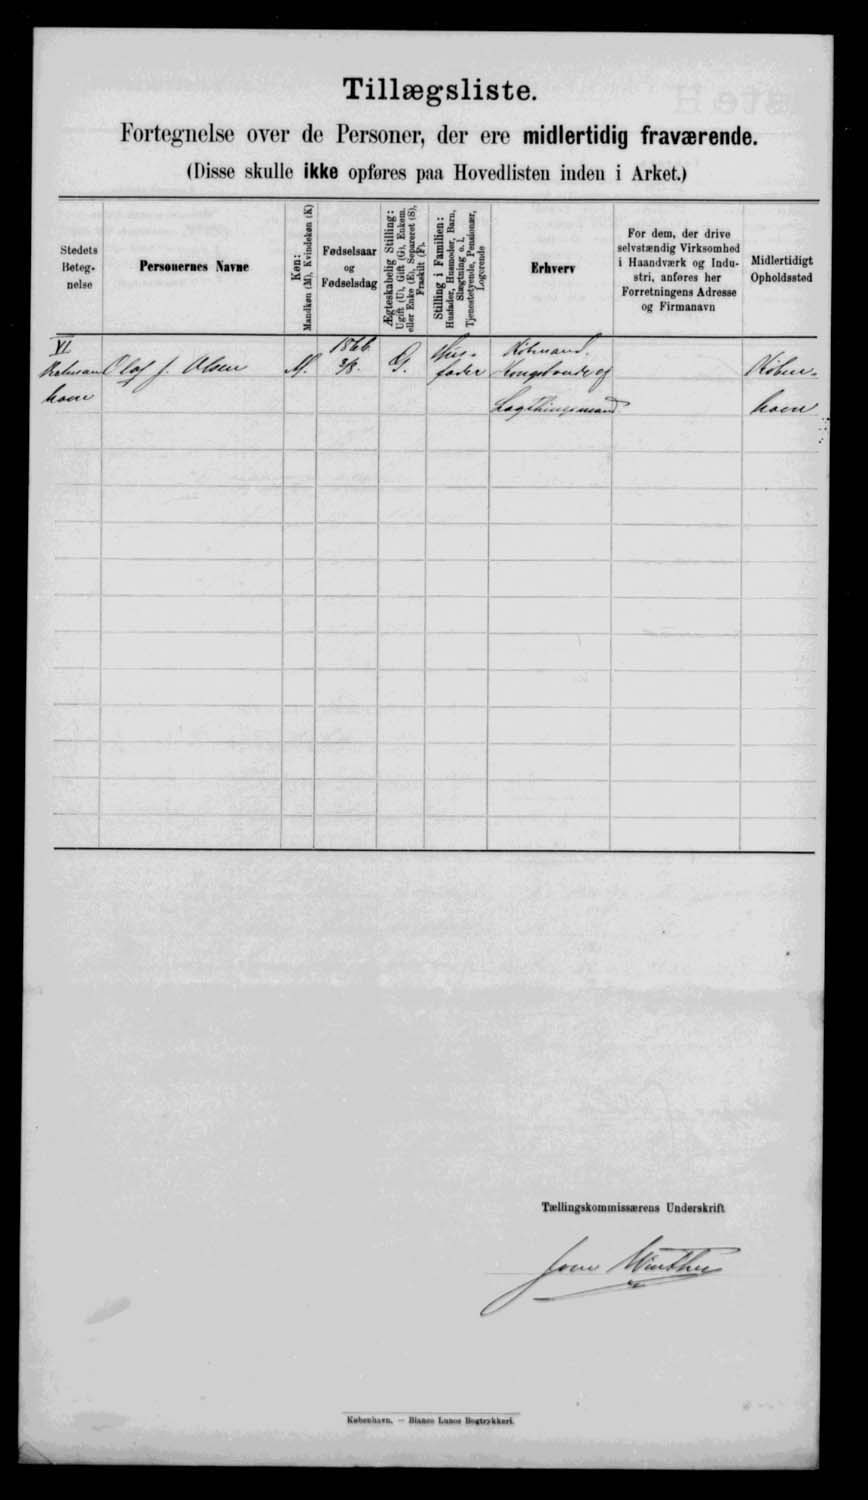 Tillægsliste.
Fortegnelse over de Personer, der ere midlertidig fraværende.
(Disse skulle ikke opføres paa Hovedlisten inden i Arket.)
Stedets
Beteg-
nelse
Personernes Navne
Køn:
Mandkøn (M), Kvindekøn (K)
Fødselsaar
og
Fødselsdag
Ægteskabelig Stilling:
Ugift (U), Gift (G), Enkem.
eller Enke (E), Separeret (S),
Fraskilt (F).
Stilling i Familien:
Husfader, Husmoder, Barn,
Slægtning o. l.
Tjenestetyende, Pensionær,
Logerende
Erhverv
For dem, der drive
selvstændig Virksomhed
i Haandværk og Indu-
stri, anføres her
Forretningens Adresse
og Firmanavn
Midlertidigt
Opholdssted
VI
havn
Olaf J. Olsen
M.
1866
3/8.
G.
Hus-
fader
Købmand,
Kongsbonde og
Lagthingsmand
Køben-
havn
Tællingskommissærens Underskrift
Joen Winther
København. — Bianco Lunos Bogtrykkeri.